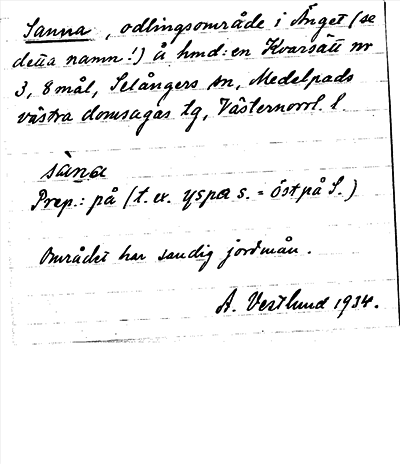 Sanna, odlingsområde i Änget (se
detta namn!) å hmd: en Kvarsätt nr
3, 8 mål, Selångers sn, Medelpads
västra domsagas tg, Västernorrl. l.
sàna
Prep.: på (t. ex. yspa s. = öst på S.)
Området har sandig jordmån.
A. Vestlund 1934.